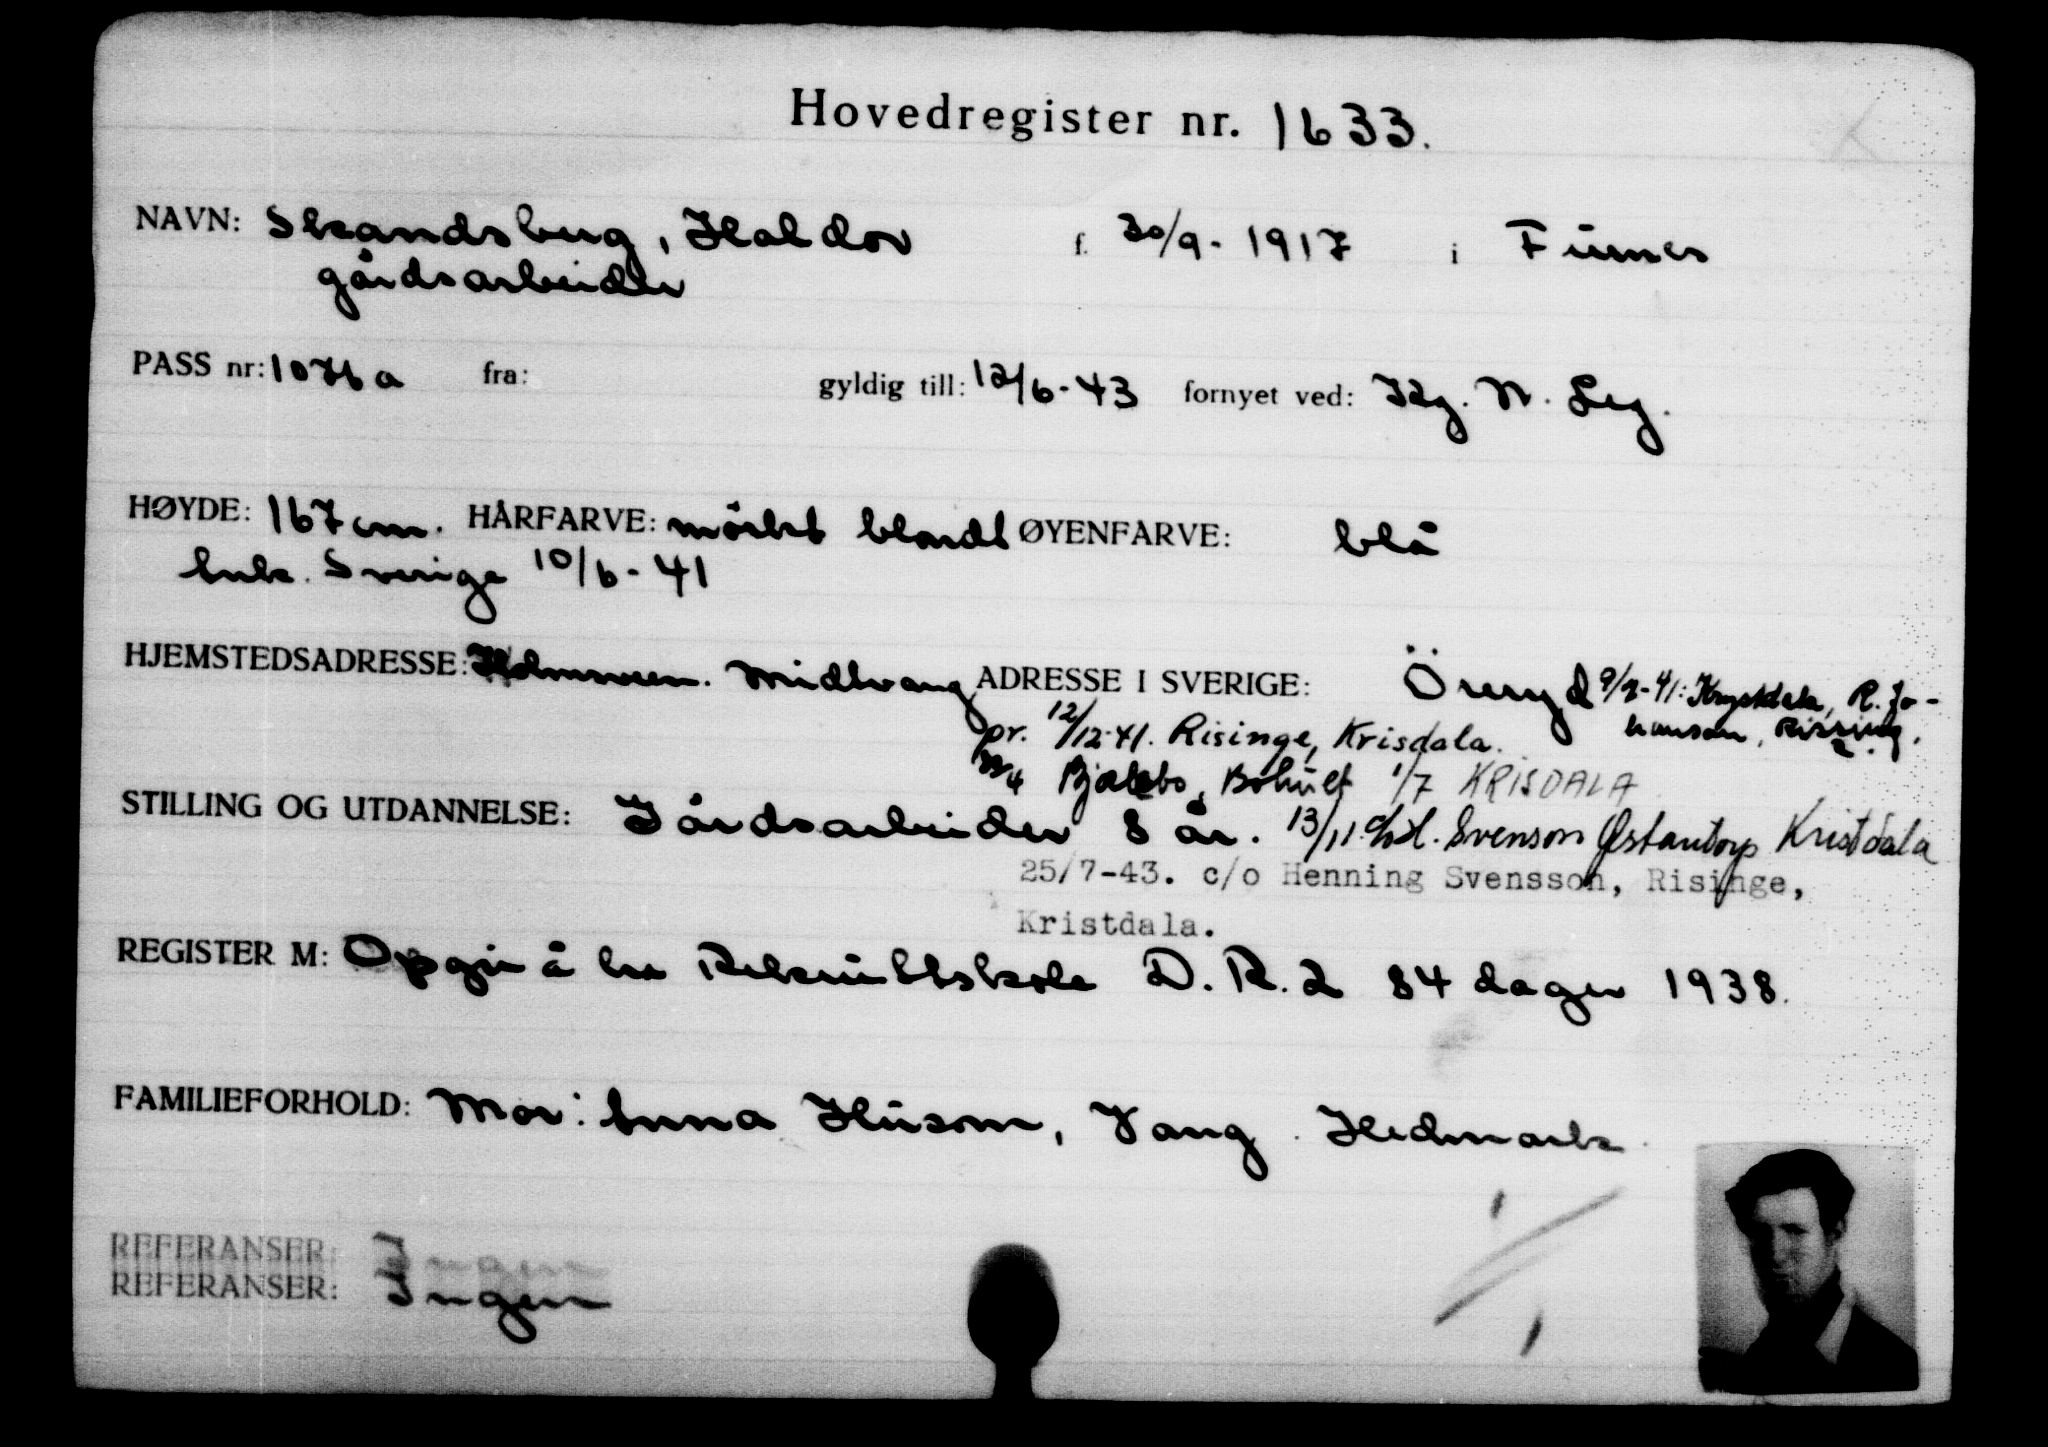 Hovedregister nr. 1633.
NAVN: Skandsberg, Haldor f. 30/9-1917 i Furnes
gårdsarbeider
PASS nr: 1076a fra: gyldig till: 12/6-43 fornyet ved: Kg. N. Leg.
HØYDE: 167 cm. HÅRFARVE: mörkt blondt ØYENFARVE: blå
Ank. Sverige 10/6-41
HJEMSTEDSADRESSE: Midtvang ADRESSE I SVERIGE: Öreryd 9/7-41: Krystdala, R. Jo-
hanson, Rissing.
pr. 12/12-41. Risinge, Krisdala.
Bjälebo, Bohult 1/7 KRISDALA
STILLING OG UTDANNELSE: Gårdsarbeider 8 år. 13/11 c/o H. Svenson Østantorp Kristdala
25/7-43. c/o Henning Svensson, Risinge,
Kristdala.
REGISTER M: Opgir å ha Rekruttskole D.R.2 84 dager 1938.
FAMILIEFORHOLD: Mor: Anna Husom, Vang. Hedmark.
REFERANSER: Ingen
REFERANSER: Ingen